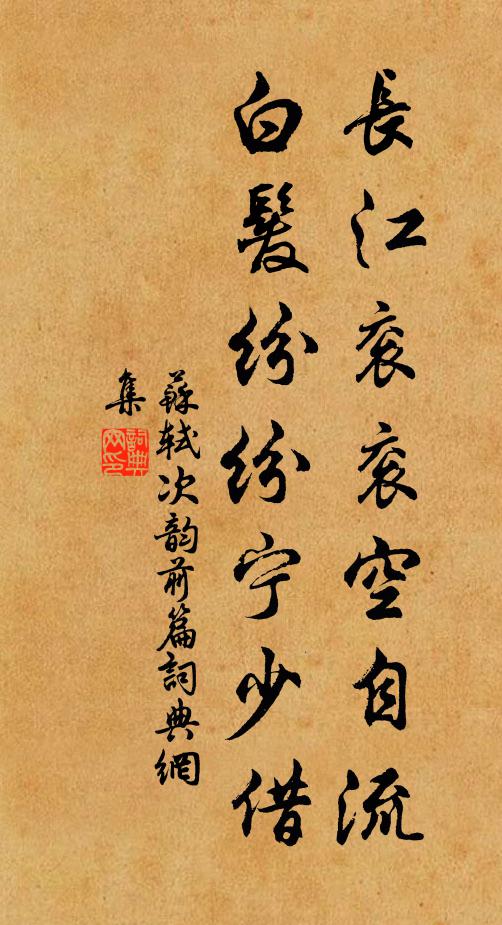 長江衮衮空自流
白髮紛紛宁少借
蘇軾次韵前篇詞典網
集
詞典網印